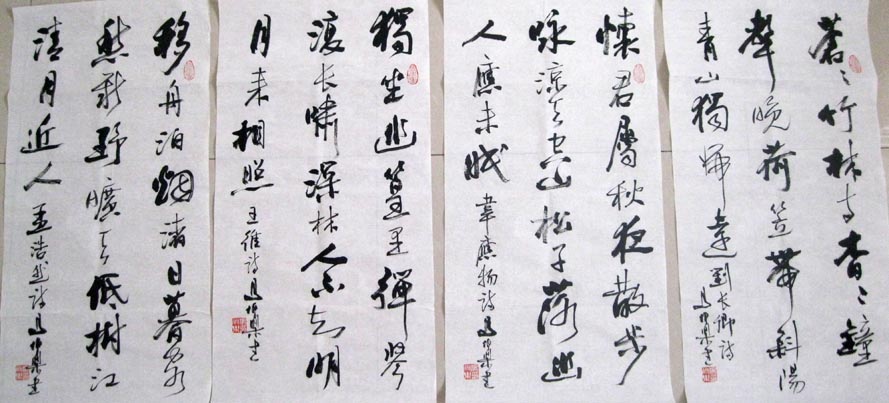 蒼〻竹林寺杳〻鐘
聲晚荷笠帶斜陽
青山獨歸遠 劉長卿詩
書
懷君屬秋夜散步
詠涼天空山松子落幽
人應未眠 韋應物詩 書
獨坐幽篁里彈琴
復長嘯深林人不知明
月来相照 王維詩 書
移舟泊烟渚日暮客
愁新野曠天低樹江
清月近人 孟浩然詩 書